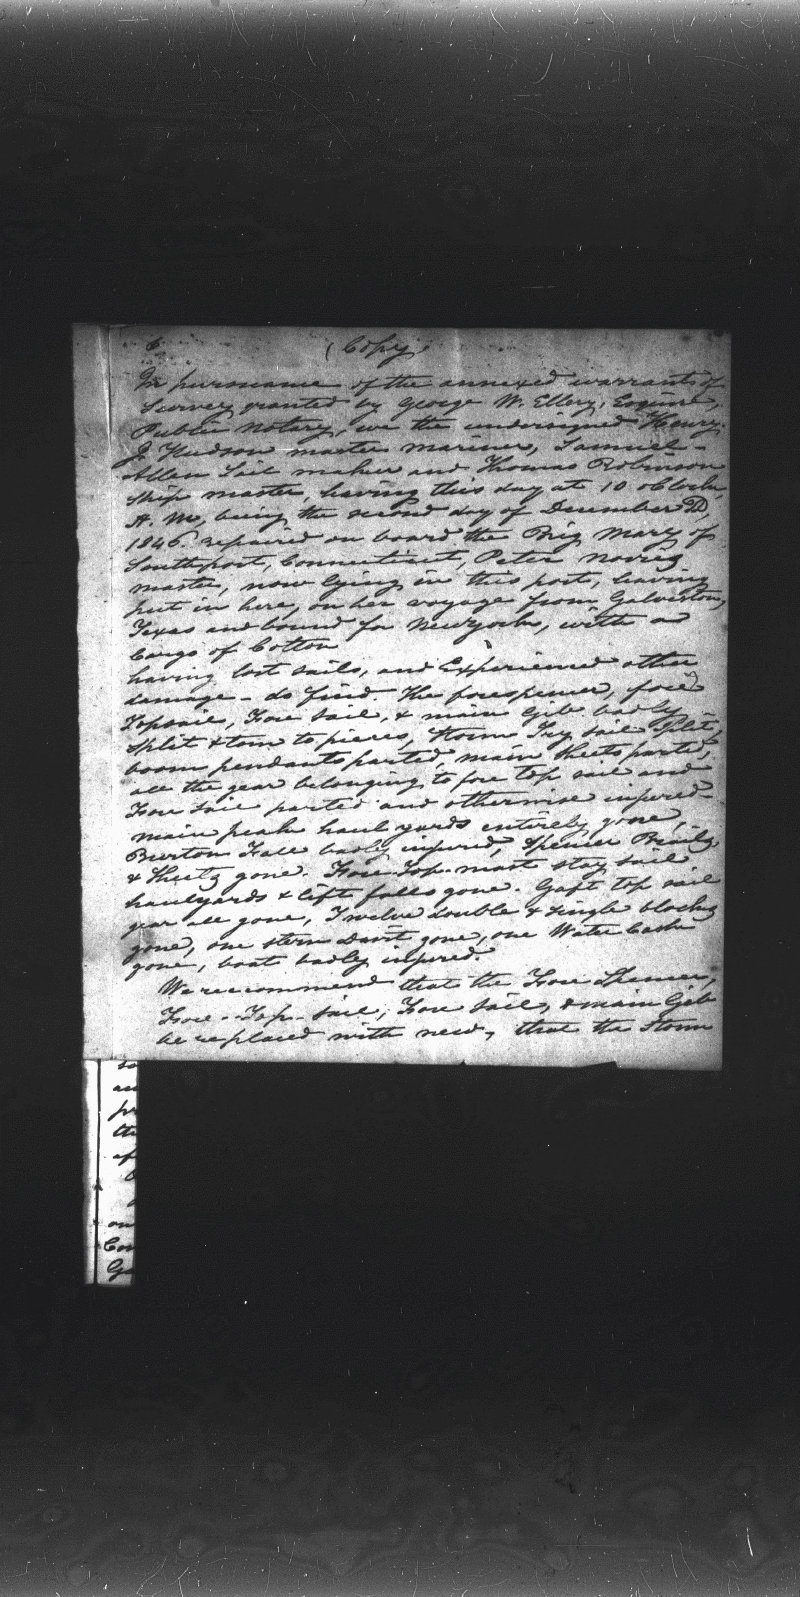 C (Copy)
In pursuance of the annexed warrant of
Survey granted by George W. Ellery, Esquire,
Public Notary, we the undersigned Henry
J. Hudson master mariner, Samuel
Allen Sail maker and Thomas Robinson
Ship master, having this day at 10 oClock,
A. M, being the second day of December AD,
1846 repaired on board the Brig Mary of
Southport, Connecticut, Peter Norris
master, now lying in this port, having
put in here, on her voyage from Galveston,
Texas and bound for Newyork, with a
Cargo of Cotton
having lost sails, and Experienced other
damage - do find the forespencer, fore
Topsail, Fore Sail, & main Gib badly
Split & torn to pieces, Storm Try sail Split,
boom pendants parted, main sheets parted,
all the gear belonging to fore top sail and
Fore Sail parted and otherwise injured
main peak haulyards entirely gone,
Burton Falls badly injured, Spencer Brails
& Sheets gone. Fore Top-mast stay sail
haulyards & lift falls gone. Gaft top sail
gear all gone, Twelve double & single blocks
gone, one stern Davit gone, one Water Cask
gone, boat badly injured.
We recommend that the Fore Spencer,
Fore-Top-Sail, Fore Sail, & main Gib
be replaced with new, that the Storm